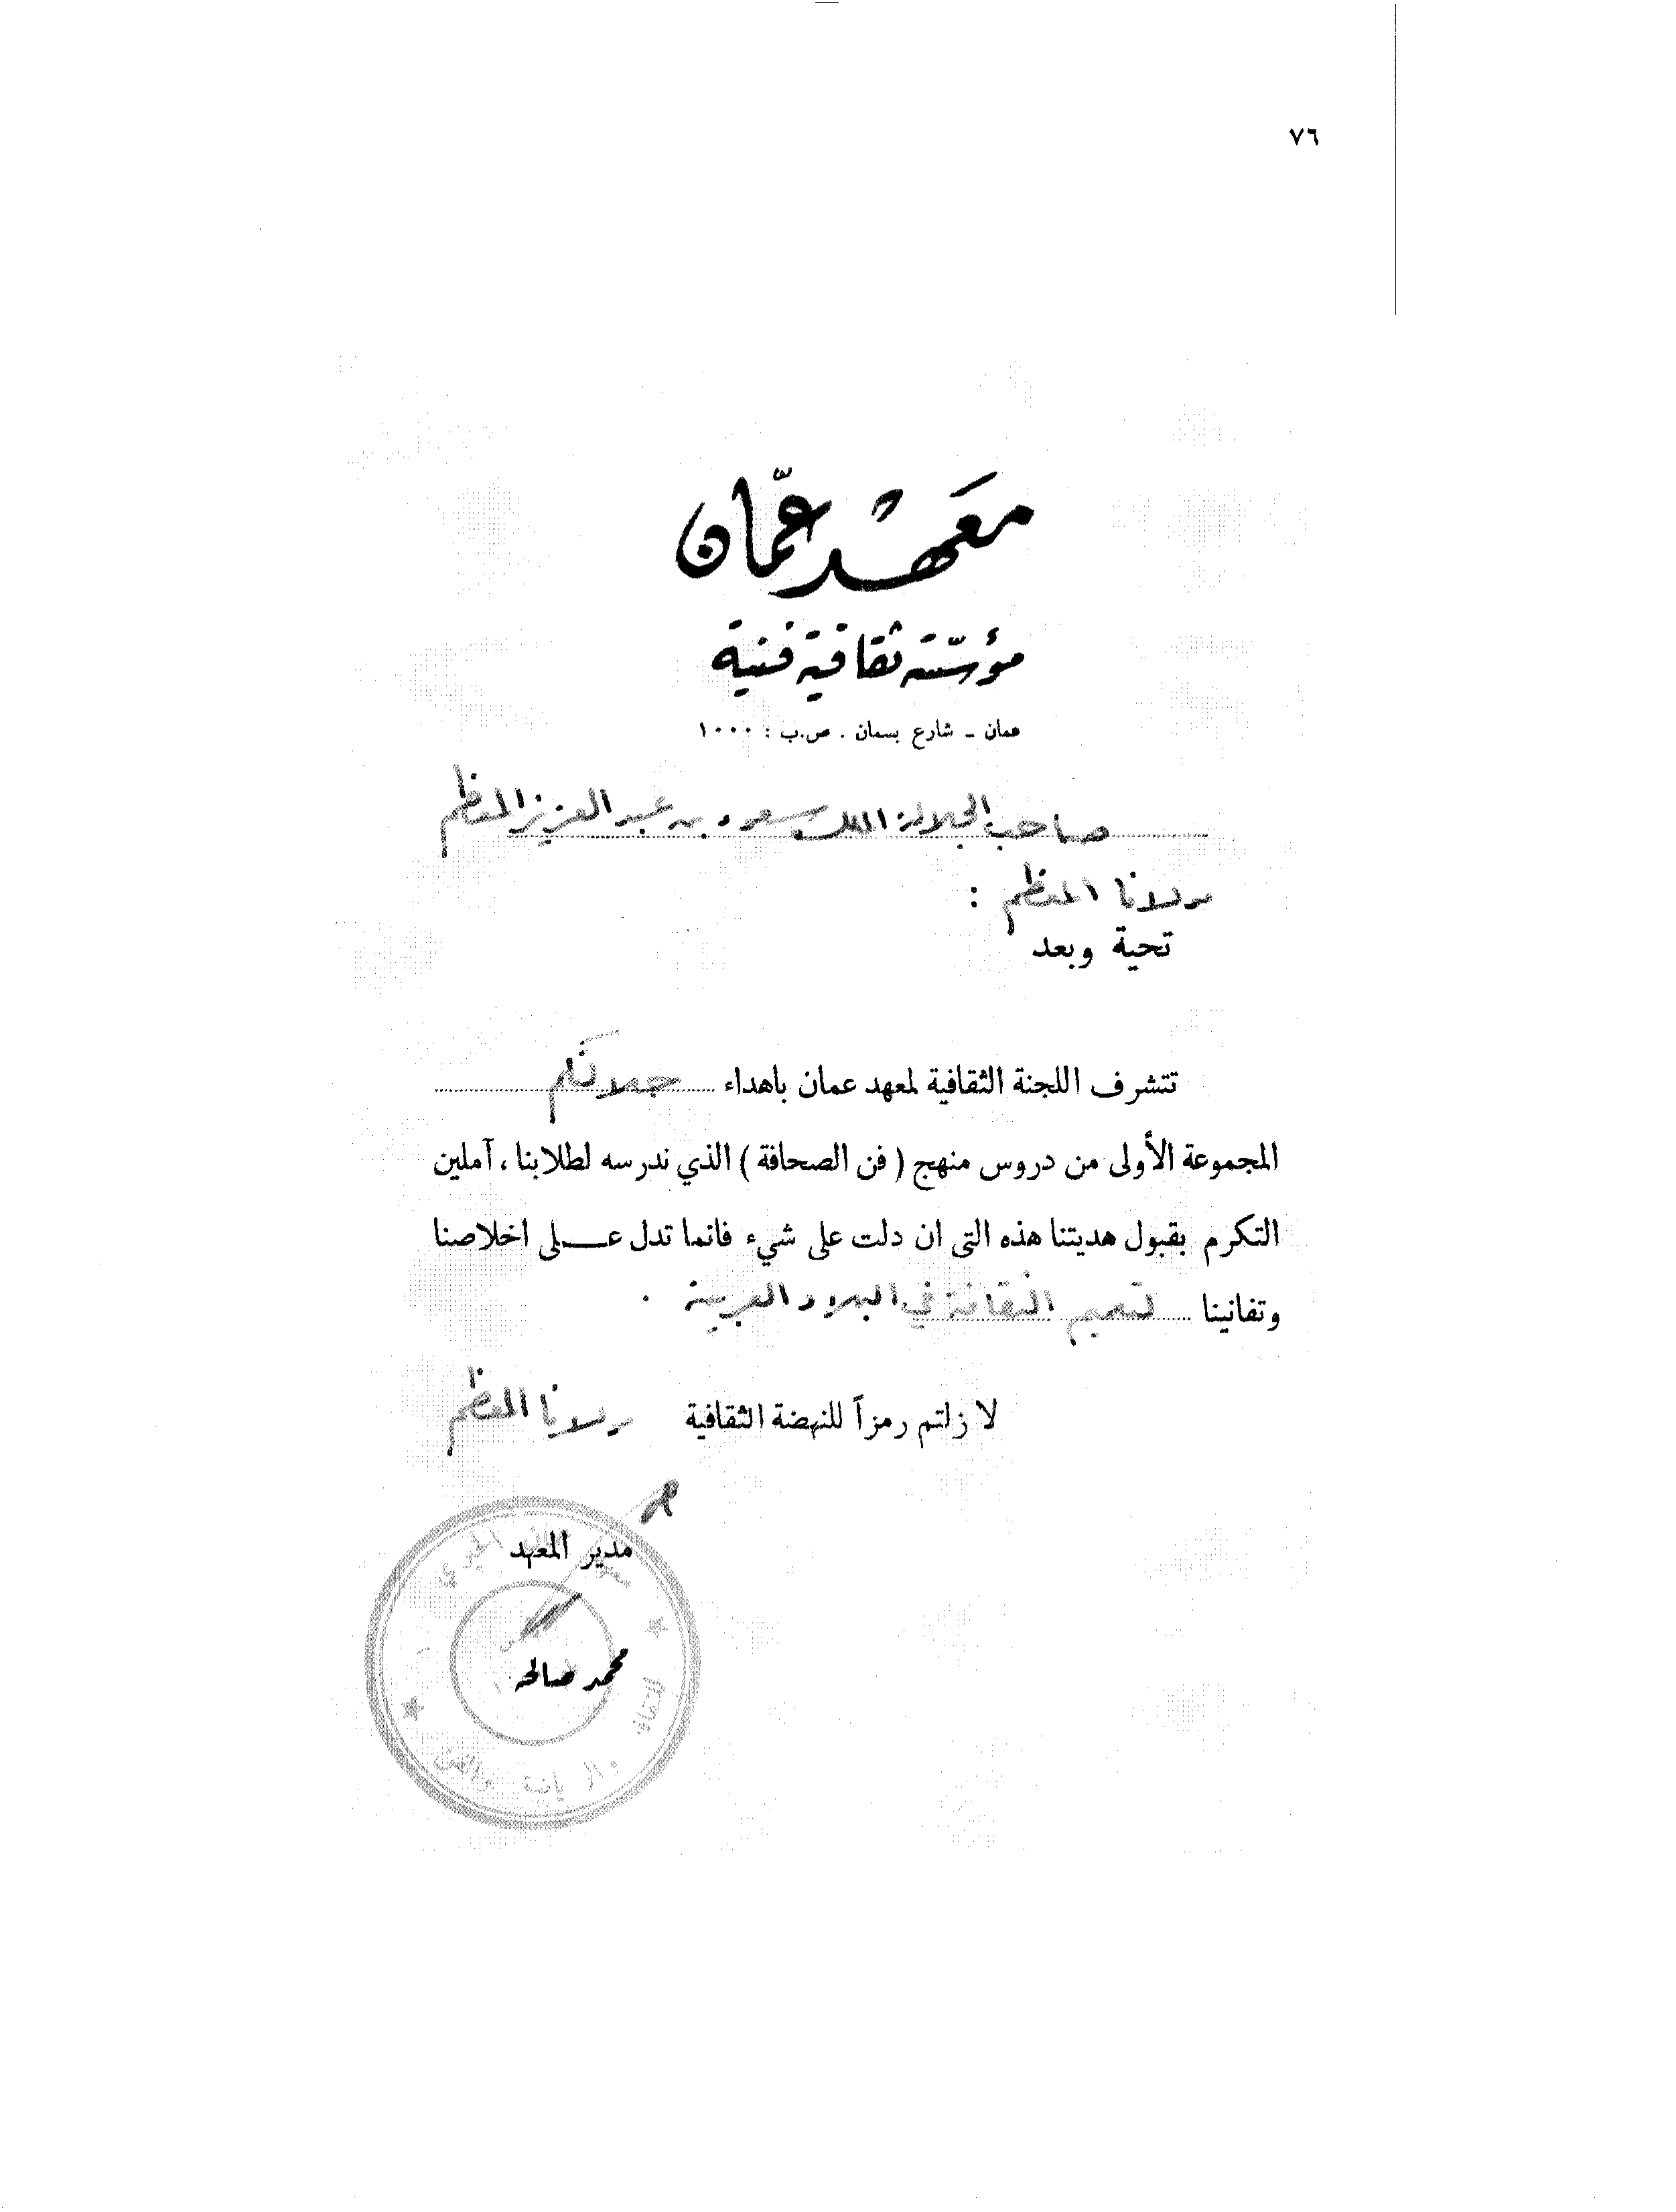 ٧٦
معهد عمّان
مؤسّسة ثقافية فنية
عمان - شارع بسمان . ص.ب : ١٠٠٠
صاحب الجلالة الملك سعود بن عبد العزيز المعظم
مولانا المعظم :
تحية وبعد
تتشرف اللجنة الثقافية لمعهد عمان باهداء جلالتكم
المجموعة الأولى من دروس منهج ( فن الصحافة ) الذي ندرسه لطلابنا ، آملين
التكرم بقبول هديتنا هذه التي ان دلت على شيء فانما تدل عـــلى اخلاصنا
وتفانينا لتعميم الثقافة في البلاد العربية .
لا زلتم رمزاً للنهضة الثقافية مولانا المعظم
مدير المعهد
محمد صالح